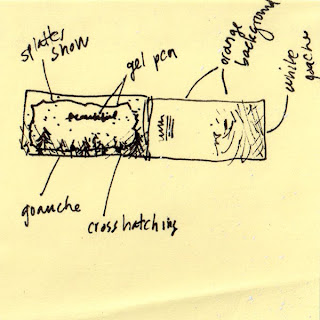 splatter
snow
gel pen
orange
background
white
guache
beautiful
goauche
crosshatching